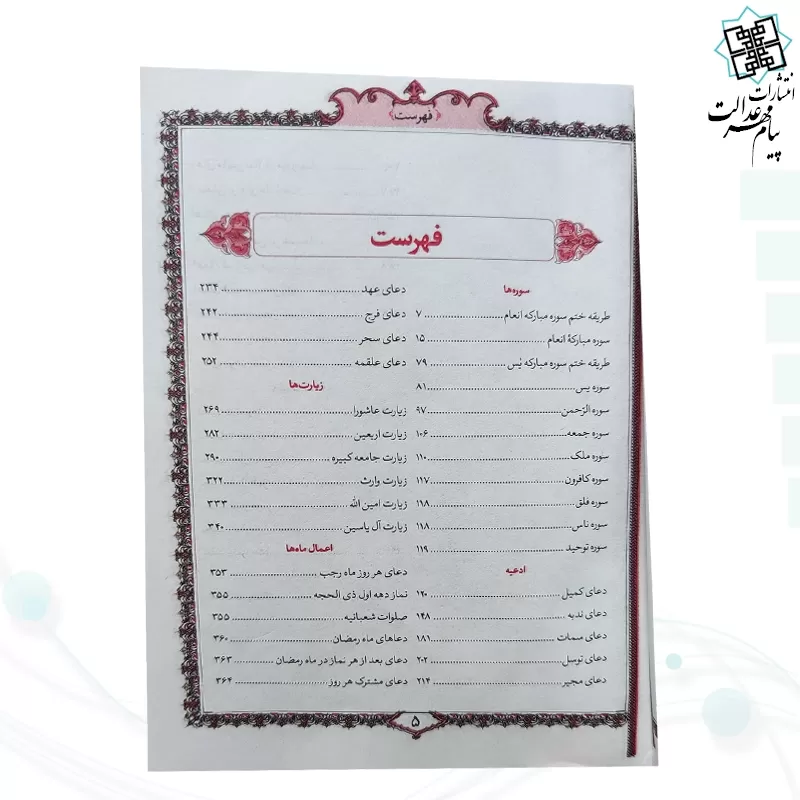 انتشارات
پیام مهر عدالت
فهرست
فهرست
سوره‌ها
طریقه ختم سوره مبارکه انعام ........ ۷
سوره مبارکهٔ انعام ........ ۱۵
طریقه ختم سوره مبارکه یٰس ........ ۷۹
سوره یس ........ ۸۱
سوره الرّحمن ........ ۹۷
سوره جمعه ........ ۱۰۶
سوره ملک ........ ۱۱۰
سوره کافرون ........ ۱۱۷
سوره فلق ........ ۱۱۸
سوره ناس ........ ۱۱۸
سوره توحید ........ ۱۱۹
ادعیه
دعای کمیل ........ ۱۲۰
دعای ندبه ........ ۱۴۸
دعای سمات ........ ۱۸۱
دعای توسل ........ ۲۰۲
دعای مجیر ........ ۲۱۴
دعای عهد ........ ۲۳۴
دعای فرج ........ ۲۴۲
دعای سحر ........ ۲۴۴
دعای علقمه ........ ۲۵۲
زیارت‌ها
زیارت عاشورا ........ ۲۶۹
زیارت اربعین ........ ۲۸۲
زیارت جامعه کبیره ........ ۲۹۰
زیارت وارث ........ ۳۲۲
زیارت امین الله ........ ۳۳۳
زیارت آل یاسین ........ ۳۴۰
اعمال ماه‌ها
دعای هر روز ماه رجب ........ ۳۵۳
نماز دهه اول ذی الحجه ........ ۳۵۵
صلوات شعبانیه ........ ۳۵۵
دعاهای ماه رمضان ........ ۳۶۰
دعای بعد از هر نماز در ماه رمضان ........ ۳۶۳
دعای مشترک هر روز ........ ۳۶۴
۵